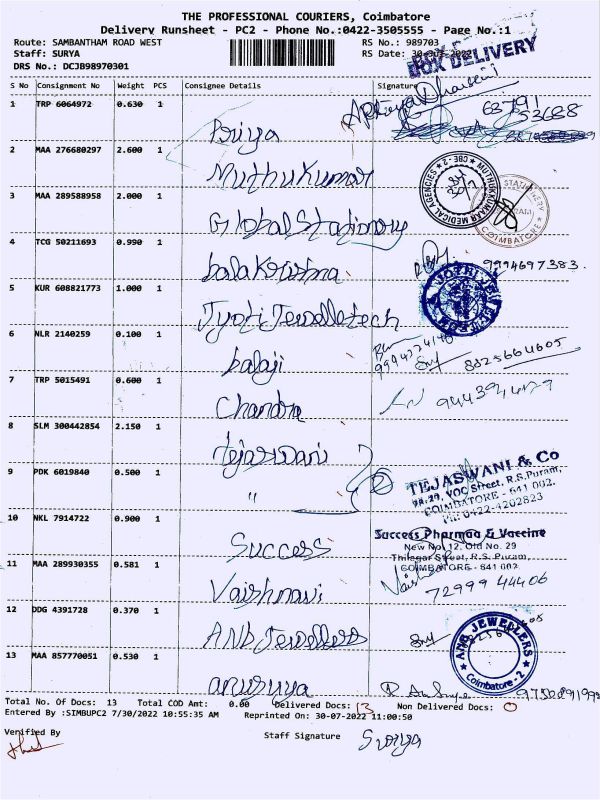 THE PROFESSIONAL COURIERS, Coimbatore
Delivery Runsheet - PC2 - Phone No.:0422-3505555 - Page No.:1
Route: SAMBANTHAM ROAD WEST RS No.: 989703
Staff: SURYA RS Date: 30-Jul-2022
BOX DELIVERY
DRS No.: DCJB98970301
S No Consignment No Weight PCS Consignee Details Signature
1 TRP 6064972 0.630 1 Priya
63791
53688
2 MAA 276680297 2.600 1 Muthukumar
MUTHUKUMAAR MEDICAL AGENCIES CBE-2
3 MAA 289588958 2.000 1 Global Stationery
STATIONERY COIMBATORE
4 TCG 50211693 0.990 1 balakrishna 9994697383
5 KUR 608821773 1.000 1 Jyoti Jewelletech
6 NLR 2140259 0.100 1 balaji 8825664605
7 TRP 5015491 0.600 1 Chandra
8 SLM 300442854 2.150 1 tejaswani
9 PDK 6019840 0.500 1 "
TEJASWANI & Co
VOC Street, R.S.Puram,
COIMBATORE - 641 002.
Ph: 0422-4202823
10 NKL 7914722 0.900 1 Success
Success Pharmaa & Vaccine
New No. 12, Old No. 29
Thilagar Street, R.S. Puram,
COIMBATORE - 641 002.
11 MAA 289930355 0.581 1 Vaishnavi
72999 44406
12 DDG 4391728 0.370 1 ANB Jewellers
ANB JEWELLERS Coimbatore-2
13 MAA 857770051 0.530 1 anusuya
Total No. Of Docs: 13 Total COD Amt: 0.00 Delivered Docs: 13 Non Delivered Docs: 0
Entered By :SIMBUPC2 7/30/2022 10:55:35 AM Reprinted On: 30-07-2022 11:00:50
Verified By Staff Signature Surya